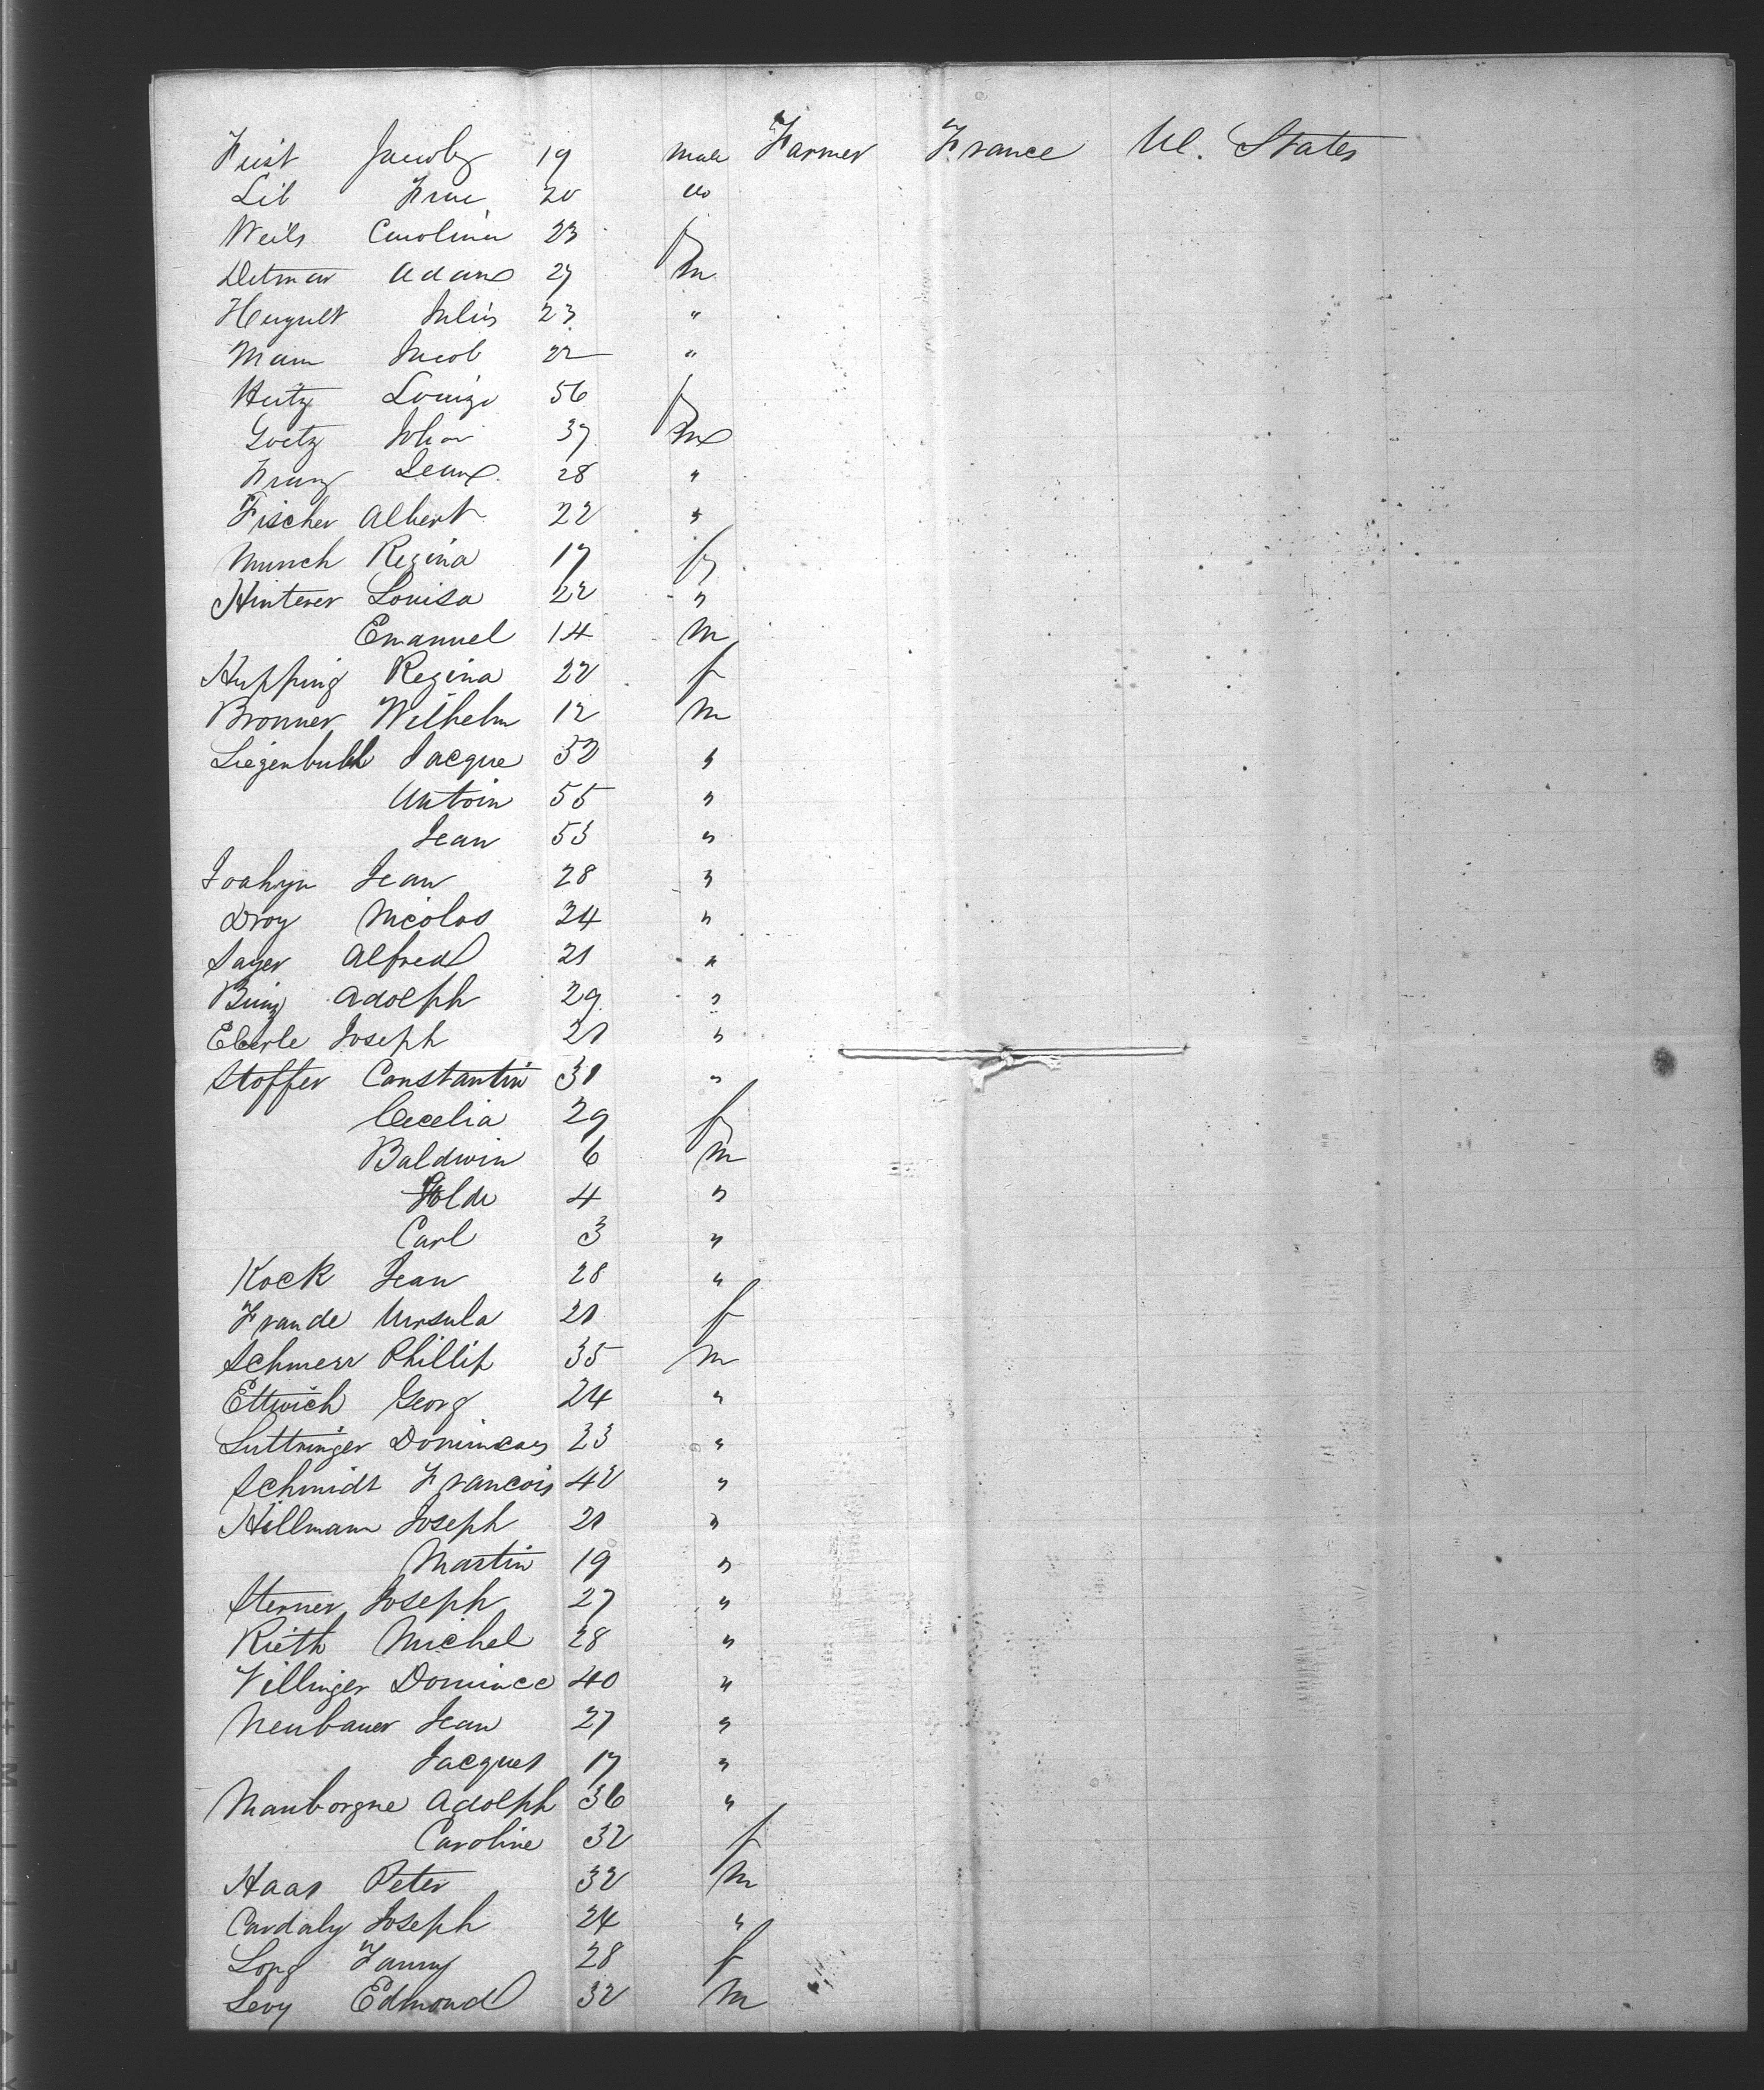 Feist Jacob 19 male Farmer France U. States
Lib 20 do
Weils Carolina 23 f
Detmar Adam 27 m
Julius 23 "
Mam Jacob 22 "
Hutz Louise 56 f
Goetz Johan 37 m
Franz Jean 28 "
Fischer Albert 22 "
Munch Regina 17 f
Hinterer Louisa 22 "
Emanuel 14 m
Hupping Regina 22 f
Bronner Wilhelm 12 m
Liezenbuhl Jacque 32 "
Antoin 55 "
Jean 53 "
Jean 28 "
Droy Nicolas 24 "
Sayer Alfred 21 "
Binz Adolph 29 "
Eberle Joseph 21 "
Stoffer Constantin 31 "
Cecelia 29 f
Baldwin 6 m
4 "
Carl 3 "
Kock Jean 28 "
Frande Ursula 21 f
Schmerr Phillip 35 m
Ettwich Georg 24 "
Luttringer 23 "
Schmidt Francois 42 "
Hillmann Joseph 21 "
Martin 19 "
Sterner Joseph 27 "
Rieth Michel 28 "
Villinger Dominec 40 "
Neubauer Jean 27 "
Jacques 17 "
Mauborgne Adolph 36 "
Caroline 32 f
Haas Peter 32 m
Cardaly Joseph 24 "
Long Fanny 28 f
Levy Edmond 32 m